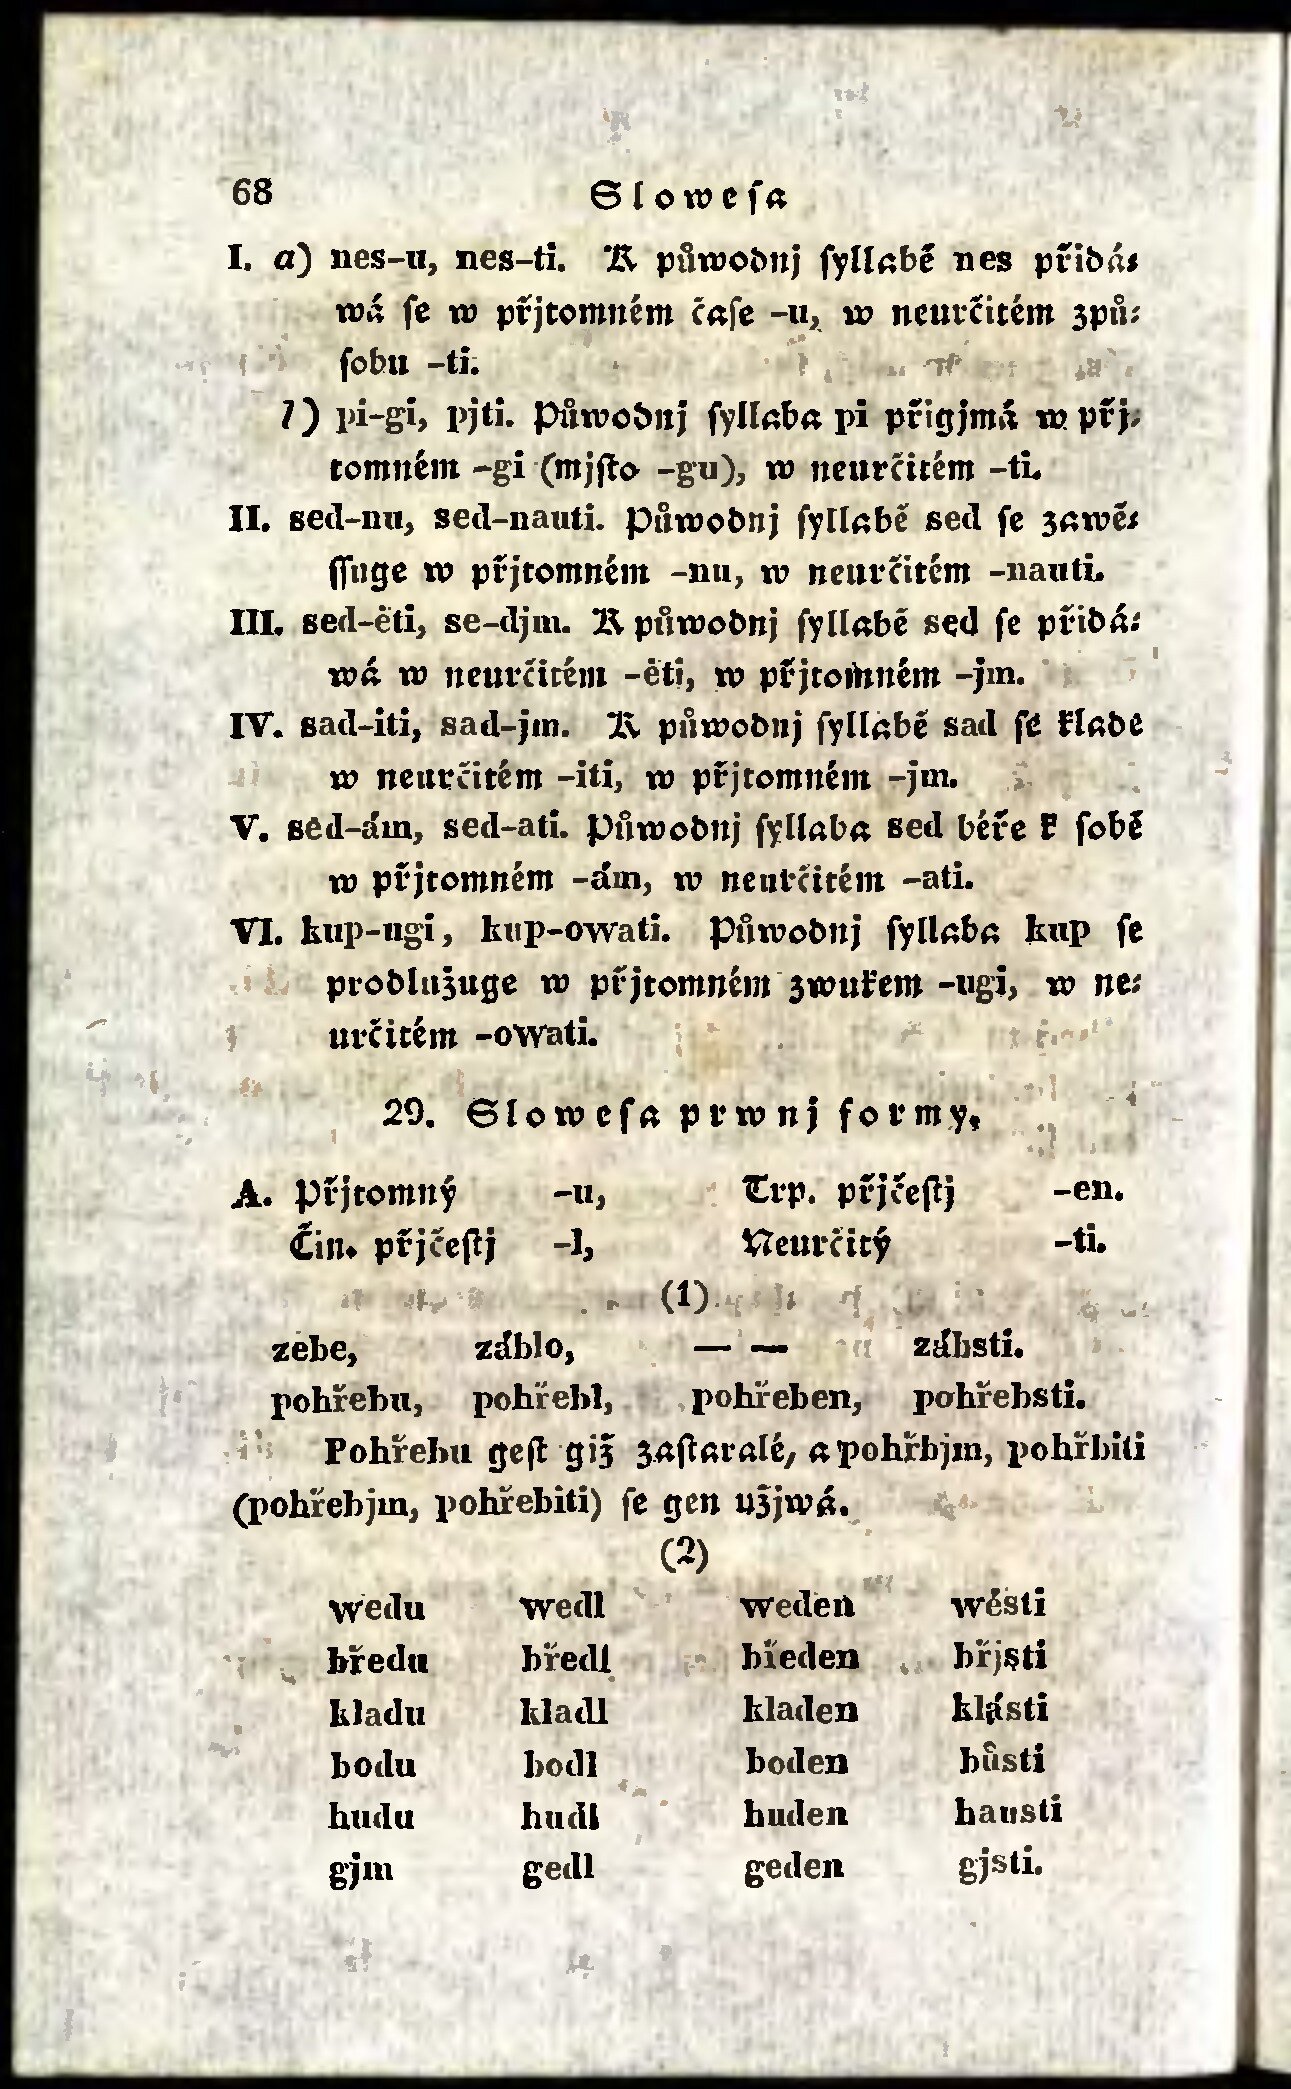 68 Slowesa
I. a) nes-u, nes-ti. K půwodnj syllabě nes přidá-
wá se w přjtomném čase -u, w neurčitém způ-
sobu -ti.
b) pi-gi, pjti. Půwodnj syllaba pi přigjmá w přj-
tomném -gi (mjsto -gu), w neurčitém -ti.
II. sed-nu, sed-nauti. Půwodnj syllabě sed se zawě-
ssuge w přjtomném -nu, w neurčitém -nauti.
III. sed-ěti, se-djm. K půwodnj syllabě sed se přidá-
wá w neurčitém -ěti, w přjtomném -jm.
IV. sad-iti, sad-jm. K půwodnj syllabě sad se klade
w neurčitém -iti, w přjtomném -jm.
V. sed-ám, sed-ati. Půwodnj syllaba sed béře k sobě
w přjtomném -ám, w neurčitém -ati.
VI. kup-ugi, kup-owati. Půwodnj syllaba kup se
prodlužuge w přjtomném zwukem -ugi, w ne-
určitém -owati.
29. Slowesa prwnj formy.
A. Přjtomný -u, Trp. přjčestj -en.
Čin. přjčestj -l, Neurčitý -ti.
(1)
zebe, záblo, — — zábsti.
pohřebu, pohřebl, pohřeben, pohřebsti.
Pohřebu gest giž zastaralé, a pohřbjm, pohřbiti
(pohřebjm, pohřebiti) se gen užjwá.
(2)
wedu wedl weden wésti
bředu bředl bředen břjsti
kladu kladl kladen klásti
bodu bodl boden bůsti
hudu hudl huden hausti
gjm gedl geden gjsti.